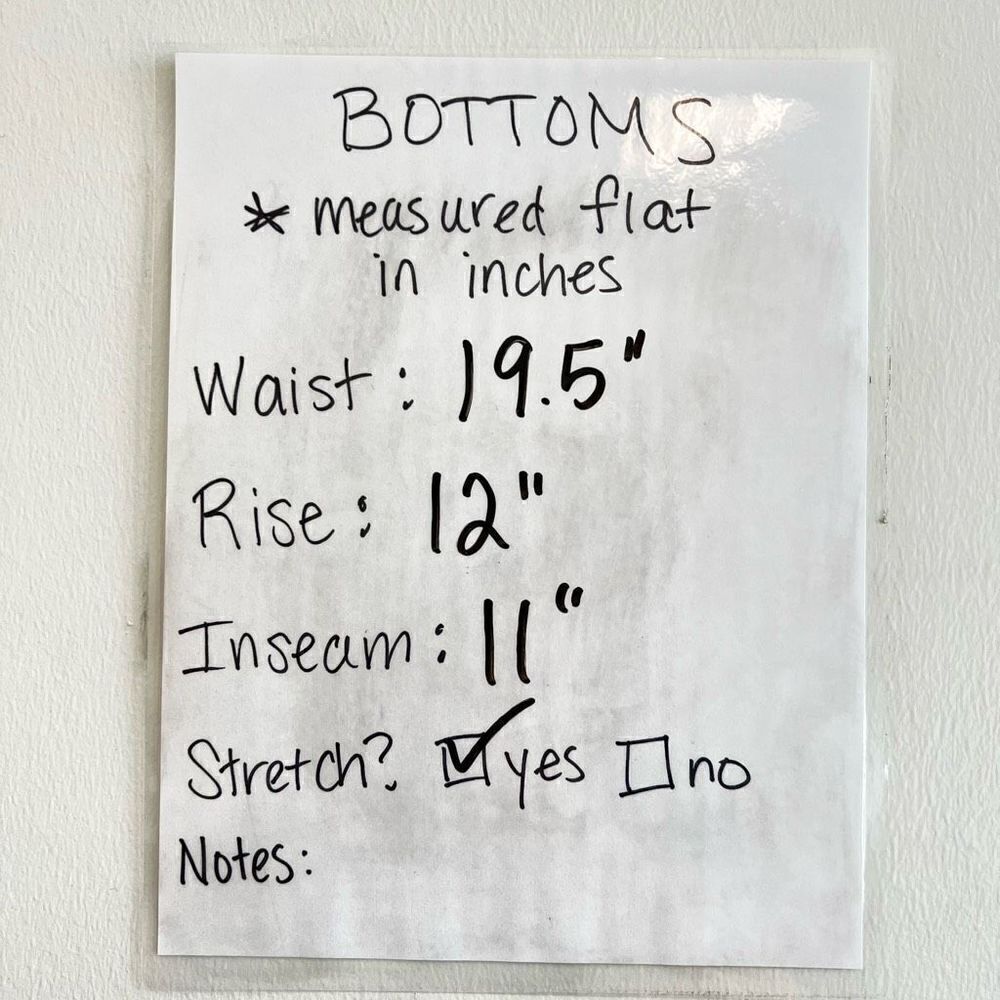 BOTTOMS
* measured flat
in inches
Waist: 19.5"
Rise: 12"
Inseam: 11"
Stretch? ☑ yes ☐ no
Notes: